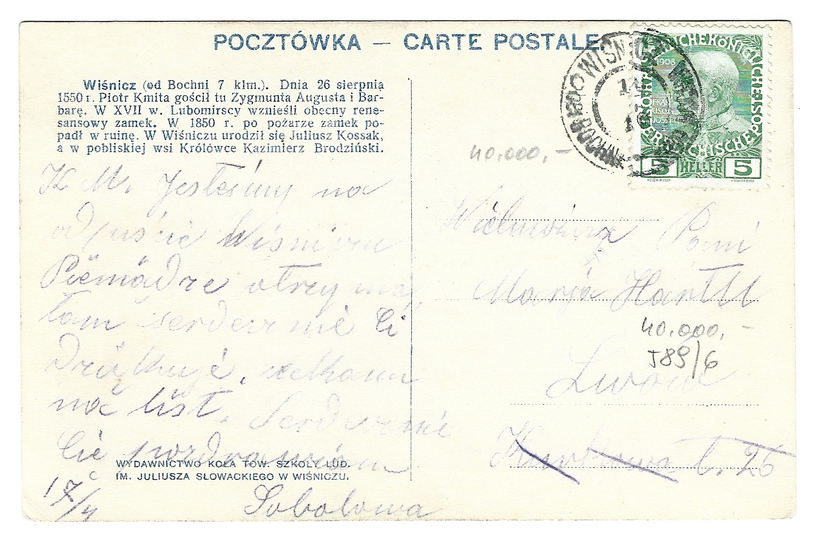 POCZTÓWKA — CARTE POSTALE
Wiśnicz (od Bochni 7 klm.). Dnia 26 sierpnia
1550 r. Piotr Kmita gościł tu Zygmunta Augusta i Bar-
barę. W XVII w. Lubomirscy wznieśli obecny rene-
sansowy zamek. W 1850 r. po pożarze zamek po-
padł w ruinę. W Wiśniczu urodził się Juliusz Kossak,
a w pobliskiej wsi Królówce Kazimierz Brodziński.
1908
5 HELLER 5
40.000,—
K. M. Jesteśmy na
odpuście
Pieniądze otrzyma
łam serdecznie Ci
dziękuję, czekam
na list. Serdecznie
Cię pozdrawiam
Sobolowa
17/
Pani
Marja Hartll
40.000,—
J89/6
Lwów
l. 26
WYDAWNICTWO KOŁA TOW. SZKOŁY LUD.
IM. JULIUSZA SŁOWACKIEGO W WIŚNICZU.